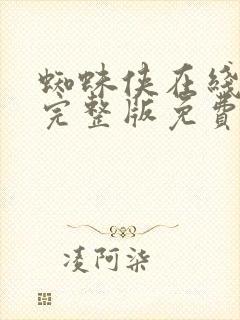 蜘蛛侠在线
完整版免費
凌阿柒